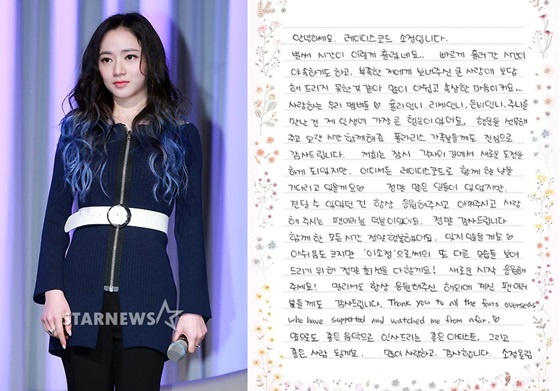 STARNEWS
안녕하세요. 레이디스코드 소정입니다.
벌써 시간이 이렇게 흘렀네요.. 빠르게 흘러간 시간이
야속하기도 하고, 부족한 저에게 보내주신 큰 사랑에 보답
해 드리지 못한것 같아 많이 아쉽고 속상한 마음이 커요..
사랑하는 우리 멤버들♡ 리세언니, 은비언니, 주니를
만난 건 제 인생에 가장 큰 행운이었어요, 행운을 선물해
주고 오랜 시간 함께해준 폴라리스 가족분들께도 진심으로
감사드립니다. 저희는 잠시 각자의 길에서 새로운 도전을
하게 되었지만, 어디서든 레이디스코드로 함께 할 날을
기다리고 있을게요♡ 정말 많은 일들이 있었지만,
견딜 수 있었던 건 항상 응원해주시고 아껴주시고 사랑
해 주시는 팬여러분 덕분이었어요. 정말 감사드립니다
함께 한 모든 시간 정말 행복했어요. 잊지 않을게요♡
아쉬움도 크지만 '이소정'으로써의 또 다른 모습들 보여
드리기 위해 정말 최선을 다할게요! 새로운 시작 응원해
주세요! 멀리서도 항상 응원해주신 해외에 계신 팬 여러
분들께도 감사드립니다. Thank you to all the fans overseas
who have supported and watched me from afar.♡
앞으로도 좋은 음악으로 인사드리는 좋은 아티스트, 그리고
좋은 사람 될게요. 많이 사랑하고, 감사합니다. 소정올림